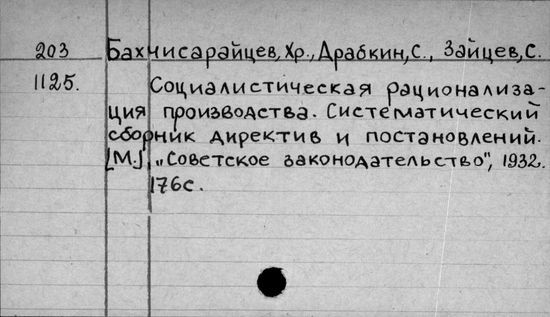 203 Бахчисарайцев, Хр., Драбкин, С., Зайцев, С.
1125. Социалистическая рационализа-
ция производства. Систематический
сборник директив и постановлений.
[М.], „Советское законодательство", 1932.
176 с.